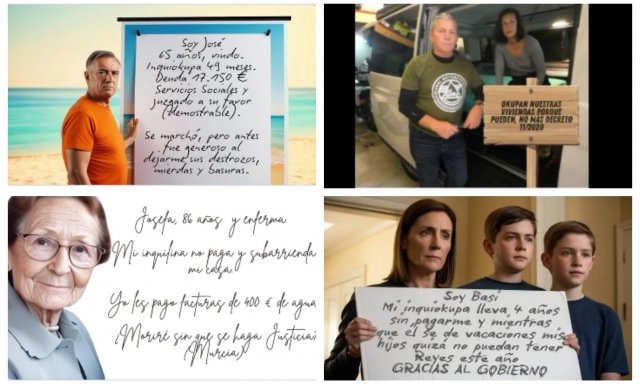 Soy José
65 años, viudo.
Inquiokupa 49 meses.
Deuda 17.150 €
Servicios Sociales y
juzgado a su favor
(demostrable).
Se marchó, pero antes
fue generoso al
dejarme sus destrozos,
mierdas y basuras.
OKUPAN NUESTRAS
VIVIENDAS PORQUE
PUEDEN, NO MÁS DECRETO
11/2020
Josefa, 86 años y enferma.
Mi inquilina no paga y subarrienda
mi casa.
Yo les pago facturas de 400 € de agua
¡Moriré sin que se haga Justicia!
(Murcia)
Soy Basi
Mi inquiokupa lleva 4 años
sin pagarme y mientras
que el se de vacaciones mis
hijos quizá no puedan tener
Reyes este año
GRACIAS AL GOBIERNO